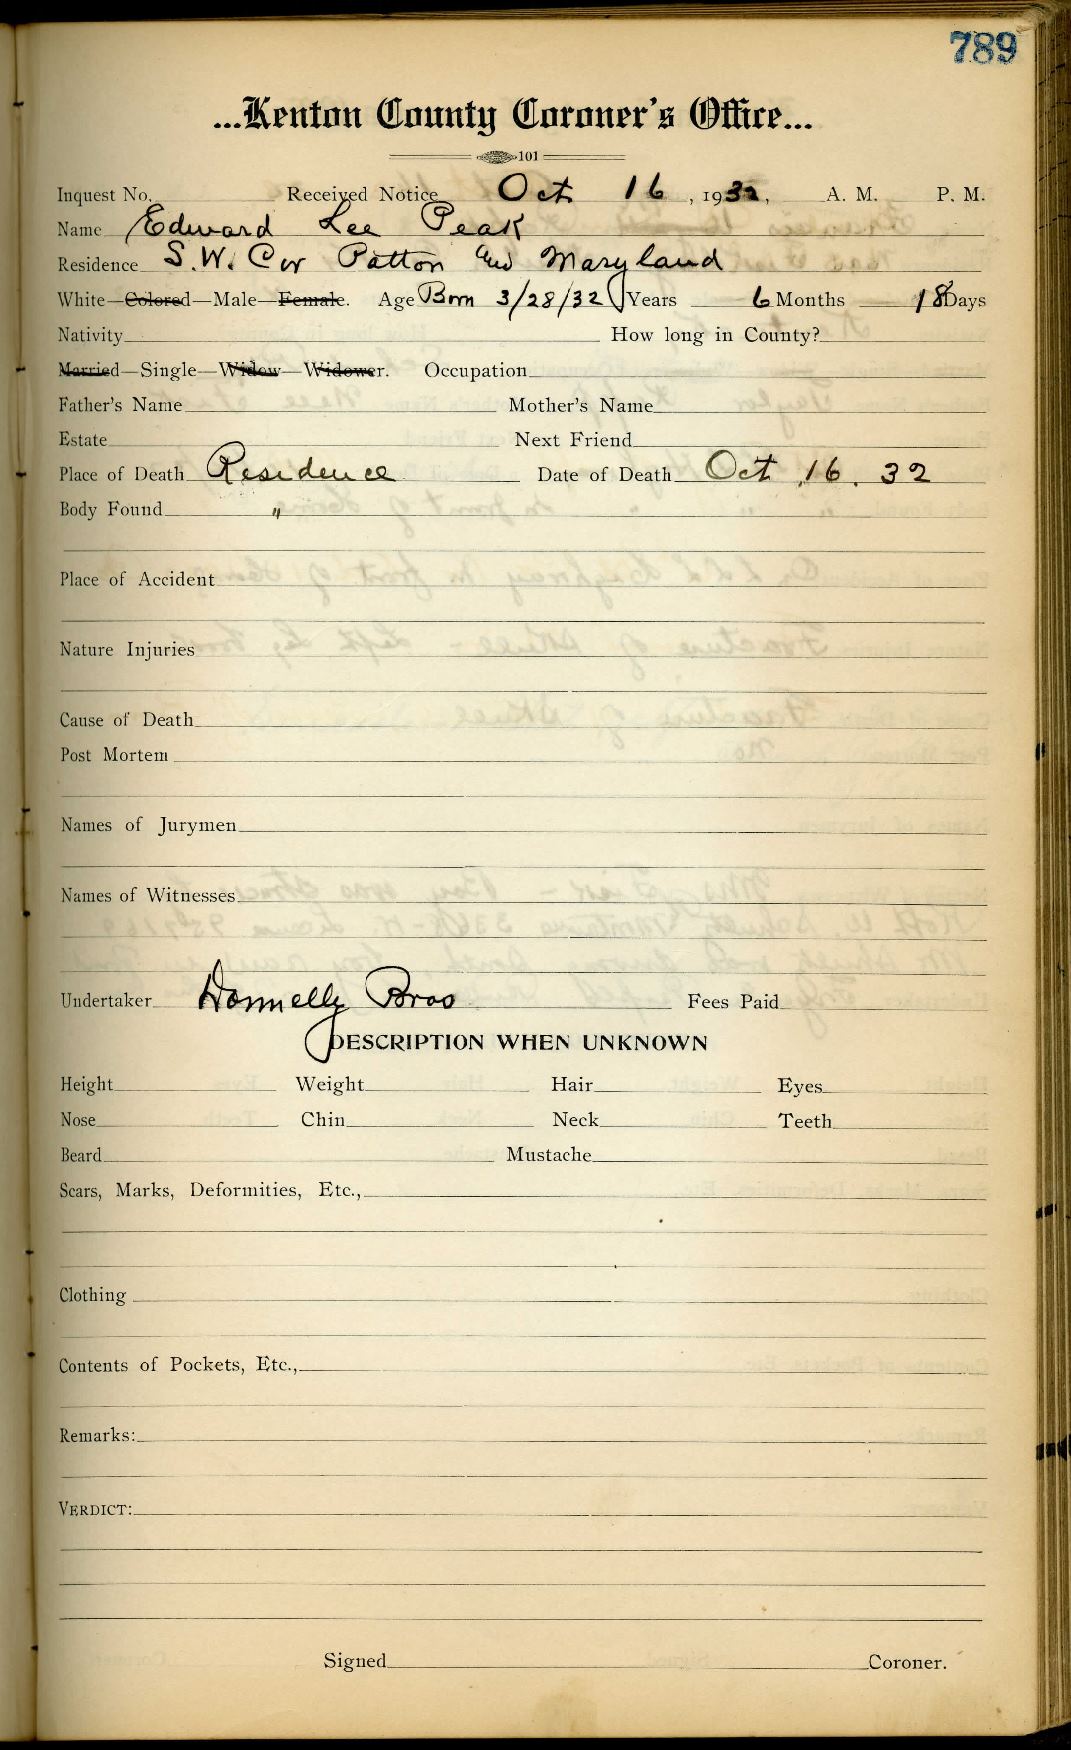 789
...Kenton County Coroner's Office...
101
Inquest No. Received Notice Oct 16, 1932, A. M. P. M.
Name Edward Lee Peak
Residence S.W. Cor Patton and Maryland
White—Colored—Male—Female. Age Born 3/28/32 Years 6 Months 18 Days
Nativity How long in County?
Married—Single—Widow—Widower. Occupation
Father's Name Mother's Name
Estate Next Friend
Place of Death Residence Date of Death Oct. 16. 32
Body Found "
Place of Accident
Nature Injuries
Cause of Death
Post Mortem
Names of Jurymen
Names of Witnesses
Undertaker Donnelly Bros Fees Paid
DESCRIPTION WHEN UNKNOWN
Height Weight Hair Eyes
Nose Chin Neck Teeth
Beard Mustache
Scars, Marks, Deformities, Etc.,
Clothing
Contents of Pockets, Etc.,
Remarks:
VERDICT:
Signed Coroner.